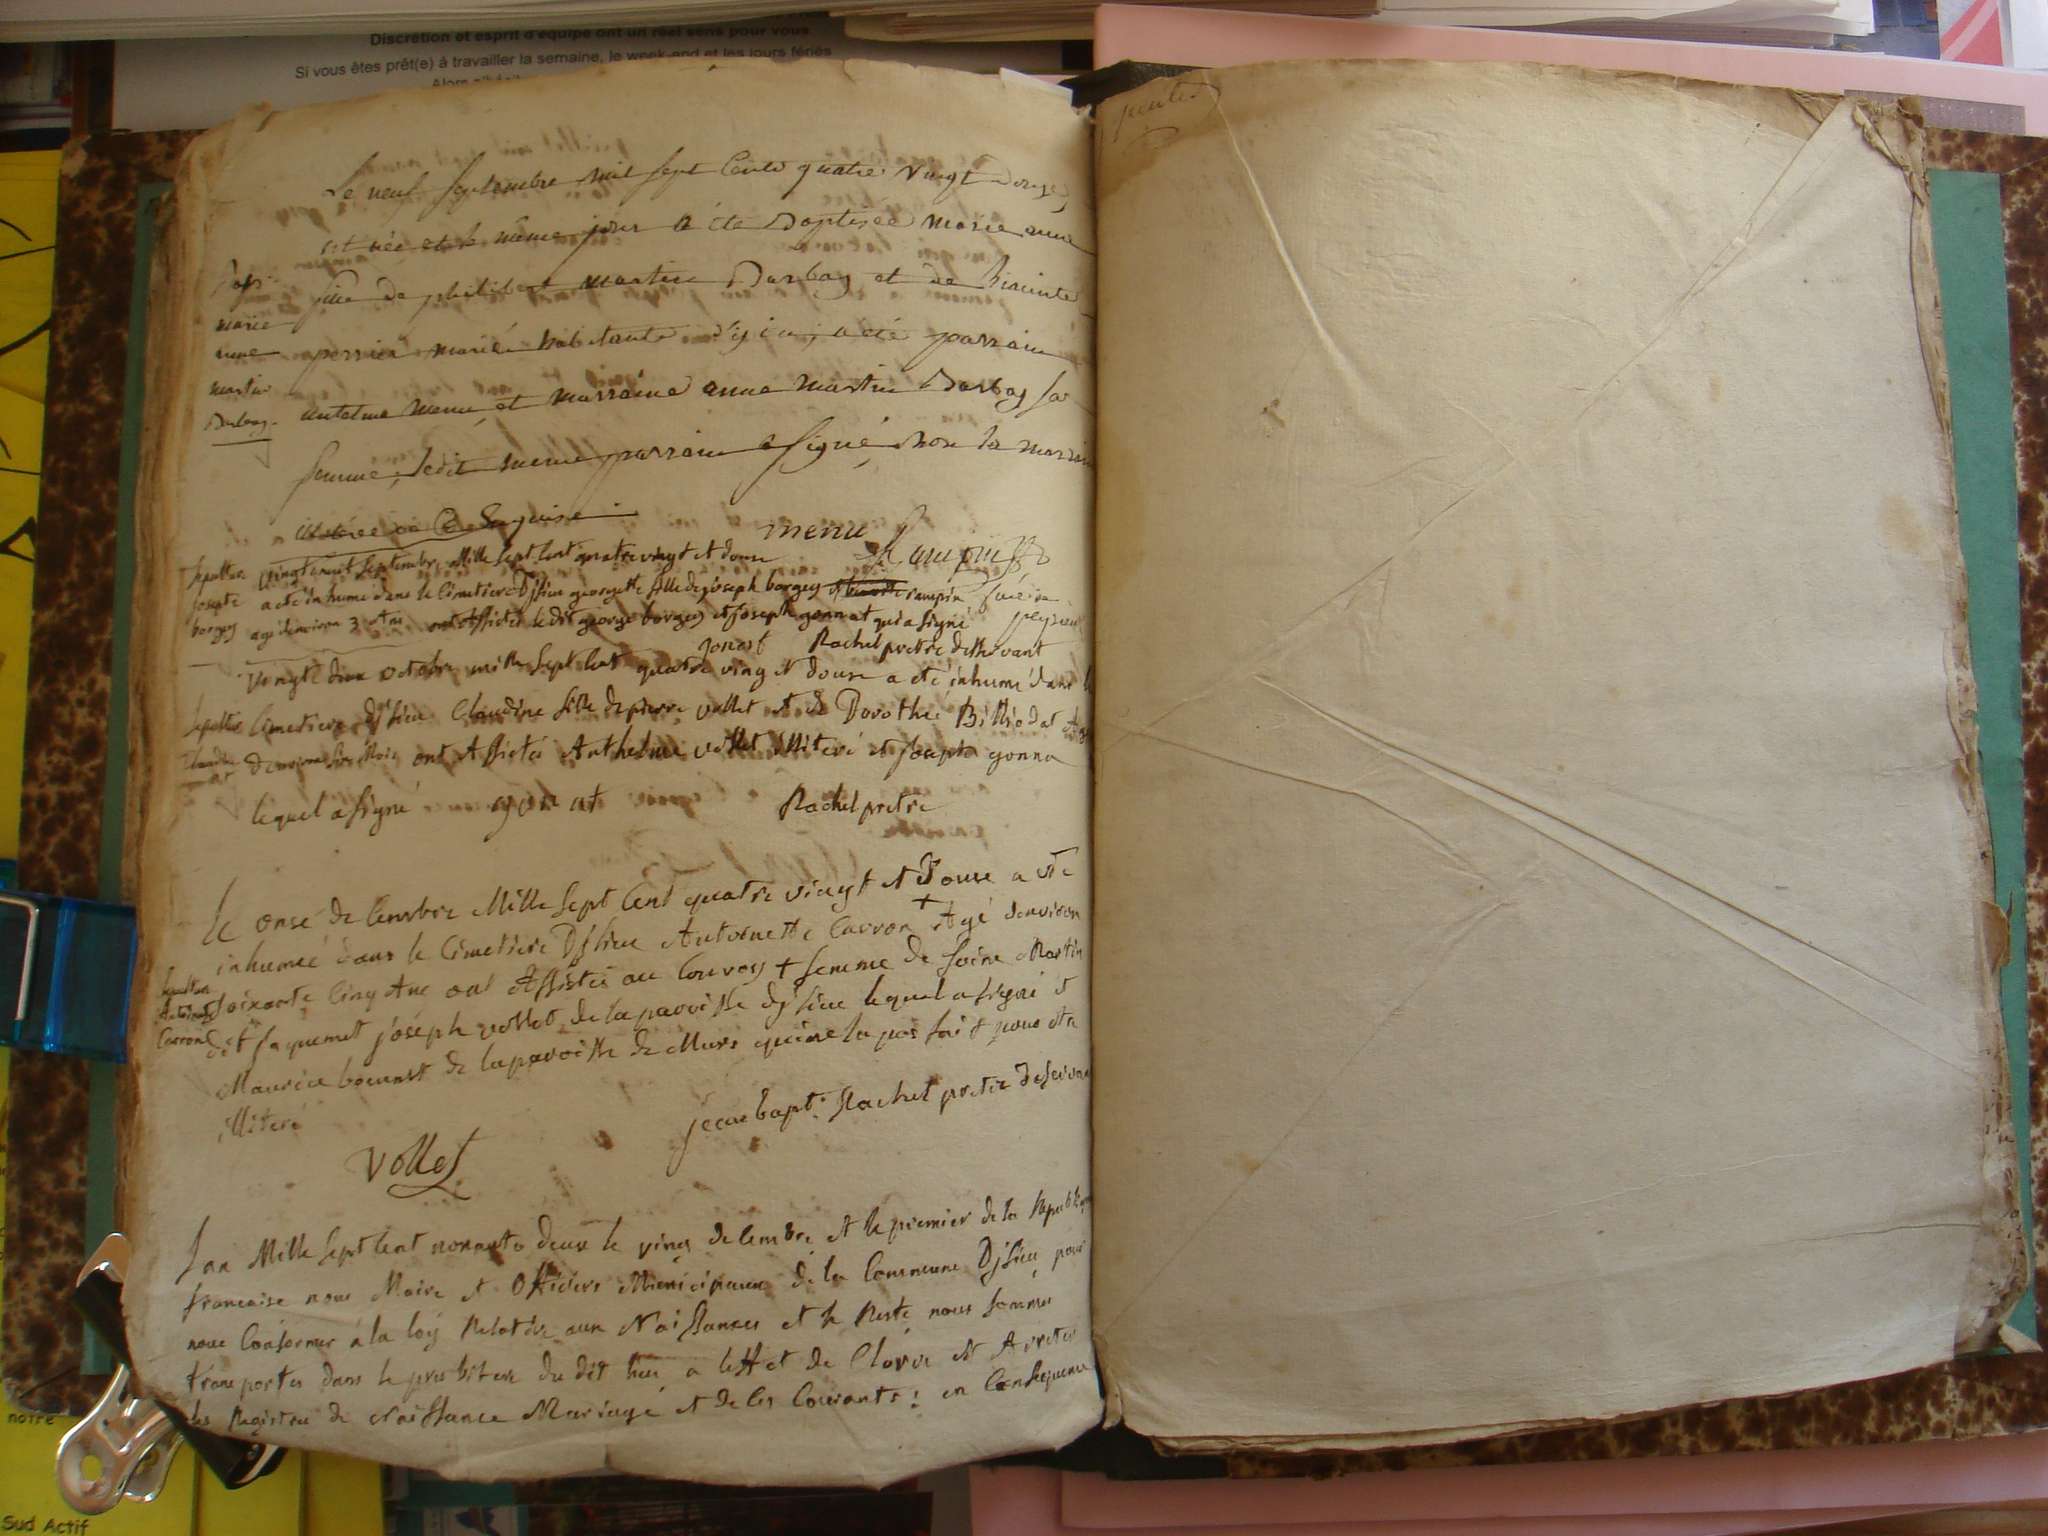 Discrétion et esprit d'équipe ont un réel sens pour vous
Si vous êtes prêt(e) à travailler la semaine, le week-end et les jours fériés
Le neuf septembre mil sept cents quatre vingt douze
est née et le même jour a été Baptisée marie anne
Bapt.
marie
anne
martin
Darbay
fille de philibert martin Darbay et de
perrier mariés habitants d'ysieu, a été parrain
antelme menu et marraine anne martin Darbay sa
femme, ledit menu parrain a signé, non la marraine
illiterée de ce Enquise
menu
Sepulture
josepte
borgey
vingt et huit septembre Mille sept Cent quatre vingt et douse
a eté inhume dans le Cimetiere Djsieu georgette fille de joseph borgey et rampin
agé denviron 3 Ans ont assistes ledit george borgey et joseph gonnat qui a signé
jonat Rachel pretre desservant
peyrieu
vingt et deux octobre mille sept Cent quatre ving et douse a eté inhumé dans le
Sepultur
Claudine
Cimetiere djsieu Claudine fille de pierre vollet et de Dorothée Billiodat
denviron six Mois ont Assistés Anthelme vollet illiteré et joseph gonna
lequel a signé gonat Rachel pretre
Le onse de Cembre Mille Sept Cent quatre vingt et Douse a eté
inhumée dans le Cimetiere Djsieu Antoinette Carron + Agé denviron
Sepulture
Antoinette
Carron
soixante Cinq Ans ont Assistés au Convoy + femme de Martin
dit jaquemet joséph vollet de la paroisse djsieu lequel a signé et
Maurice de la paroisse de Murs qui ne la pas fait pour etre
illiteré
jean bapt. Rachel pretre deservant
Vollet
Lan Mille Sept Cent nonante deux le ving de Cembre et le premier de la Republique
francaise nous Maire et Officiers Municipaux de la Commune Djsieu pour
nous Conformer á la loy Relative aux Naissances et le Reste nous sommes
transportes dans le presbitere du dit lieu a leffet de Clorre et Arreter
les Registres de Naissance Mariage et de Ces Courants : en Consequence
notre
Sud Actif